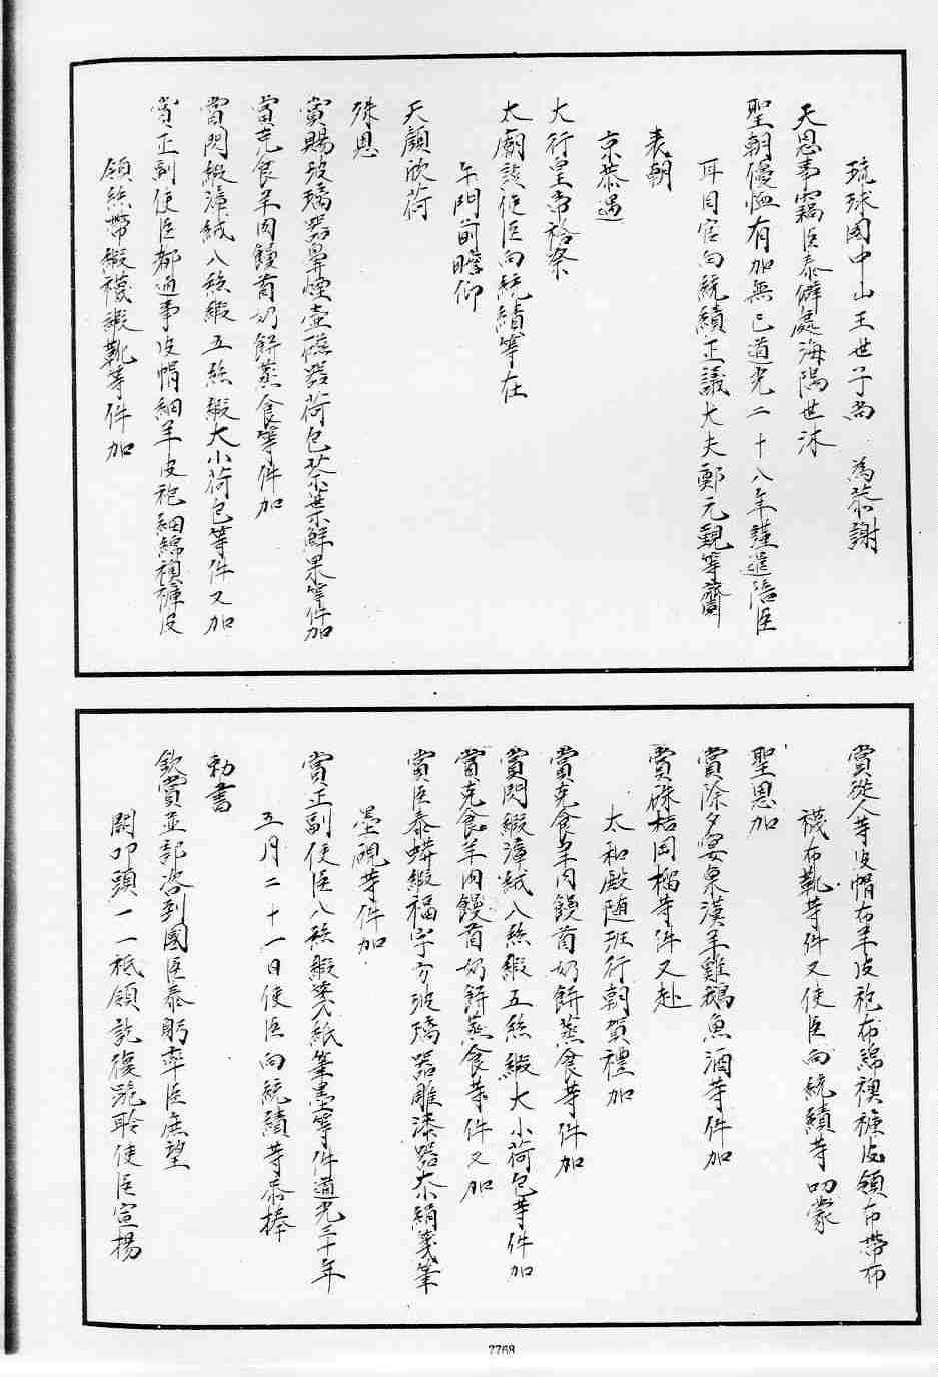 琉球國中山王世子尚 為恭謝
天恩事竊臣泰僻處海隅世沐
聖朝優恤有加無已道光二十八年謹遣陪臣
耳目官向統績正議大夫鄭元觀等齎
表朝
京恭遇
大行皇帝祫祭
太廟該使臣向統績等在
午門前瞻仰
天顏欣荷
殊恩
賞賜玻璃器鼻煙壺磁器荷包茶葉鮮果等件加
賞克食羊肉饅首奶餅蒸食等件加
賞閃緞漳絨八絲緞五絲緞大小荷包等件又加
賞正副使臣都通事皮帽細羊皮袍細綿襖褲皮
領絲帶緞襪緞靴等件加
賞從人等皮帽布羊皮袍布綿襖褲皮領布帶布
襪布靴等件又使臣向統績等叨蒙
聖恩加
賞除夕宴棗漢羊雞鵝魚酒等件加
賞硃桔岡榴等件又赴
太和殿随班行朝賀禮加
賞克食羊肉饅首奶餅蒸食等件加
賞閃緞漳絨八絲緞五絲緞大小荷包等件加
賞克食羊肉饅首奶餅蒸食等件又加
賞臣泰蟒緞福字方玻璃器雕漆器亦絹箋筆
墨硯等件加
賞正副使臣八絲緞箋紙筆墨等件道光三十年
五月二十一日使臣向統績等恭捧
勅書
欽賞並部咨到國臣泰躬率臣庶望
闕叩頭一一祇領訖復跪聆使臣宣揚
7768